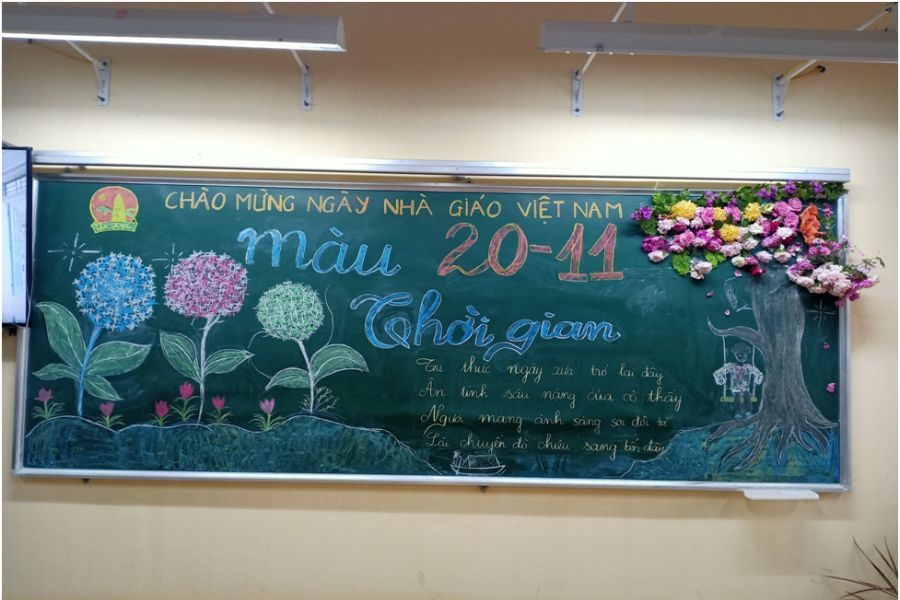 CHÀO MỪNG NGÀY NHÀ GIÁO VIỆT NAM
Màu 20-11
Thời gian
Tri thức ngày xưa trở lại đây
Ân tình sâu nặng của cô thầy
Người mang ánh sáng soi đời trẻ
Lái chuyến đò chiều sang bến đây
SẴN SÀNG